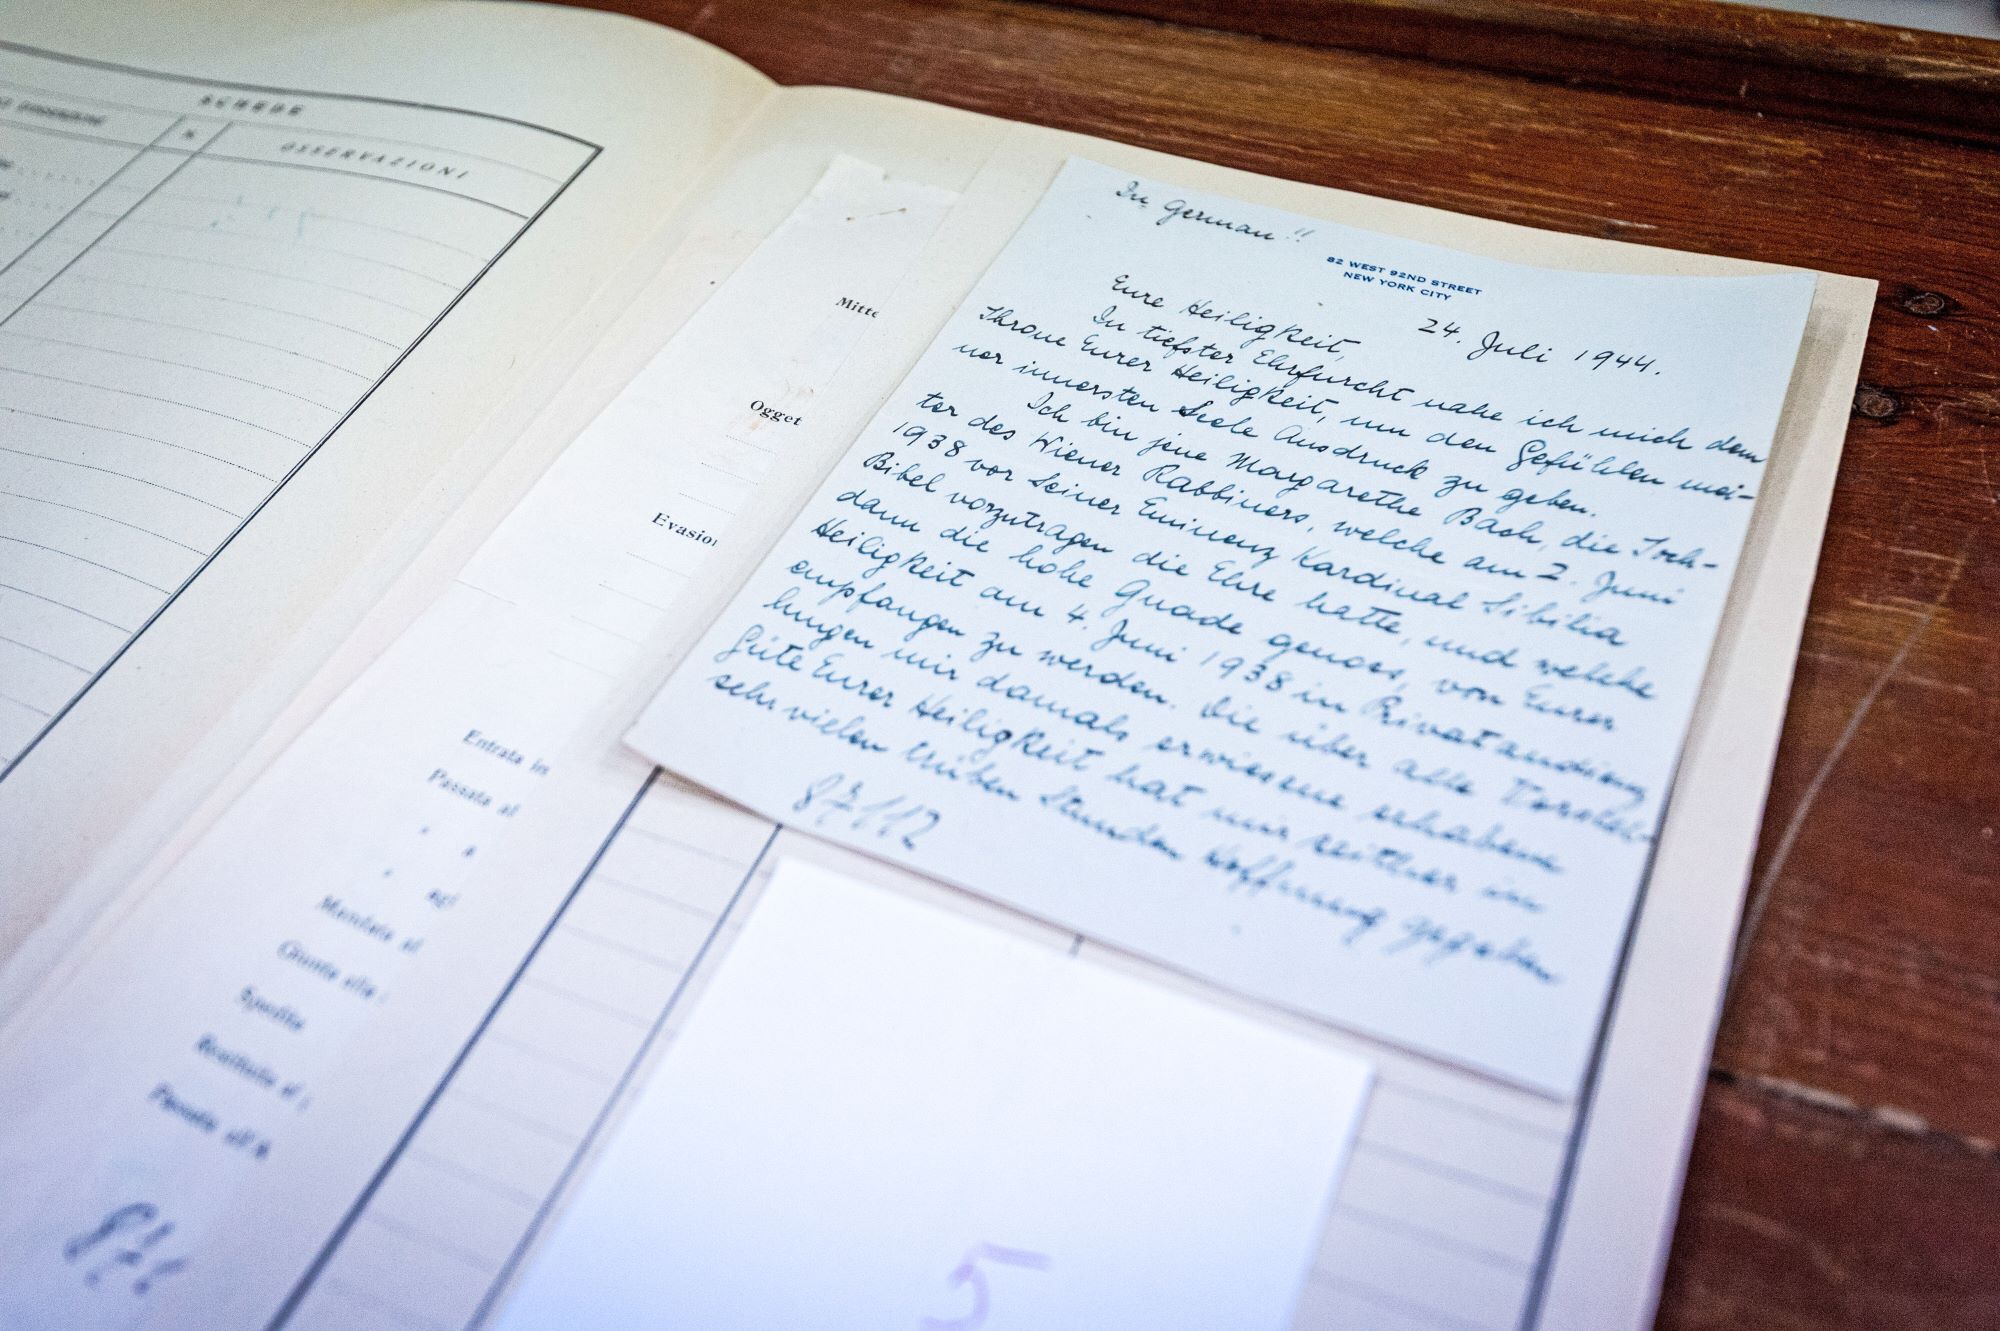 SCHEDE
N.
OSSERVAZIONI
Mitte
Ogget
Evasion
Entrata in
Passata al
" a
" agl
Mandata al
Giunta alla
Spedita
Passata all'A
In German !!
82 WEST 92ND STREET
NEW YORK CITY
24. Juli 1944.
Eure Heiligkeit,
In tiefster Ehrfurcht nahe ich mich dem
Throne Eurer Heiligkeit, um den Gefühlen mei-
ner innersten Seele Ausdruck zu geben.
Ich bin jene Margarethe Bach, die Toch-
ter des Wiener Rabbiners, welche am 2. Juni
1938 vor Seiner Eminenz Kardinal Sibilia
Bibel vorzutragen die Ehre hatte, und welche
dann die hohe Gnade genoss, von Eurer
Heiligkeit am 4. Juni 1938 in Privataudienz
empfangen zu werden. Die über alle Vorstel-
lungen mir damals erwiesene erhabene
Güte Eurer Heiligkeit hat mir seither in
sehr vielen trüben Stunden Hoffnung gegeben
87112
5